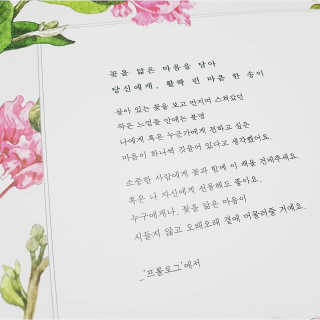 꽃을 닮은 마음을 담아
당신에게, 활짝 핀 마음 한 송이
살아 있는 꽃을 보고 만지며 스쳐갔던
작은 느낌들 안에는 분명
나에게 혹은 누군가에게 전하고 싶은
마음이 하나씩 깃들어 있다고 생각했어요.
소중한 사람에게 꽃과 함께 이 책을 건네주세요.
혹은 나 자신에게 선물해도 좋아요.
누구에게나, 꽃을 닮은 마음이
시들지 않고 오래오래 곁에 머물러줄 거예요.
_'프롤로그'에서